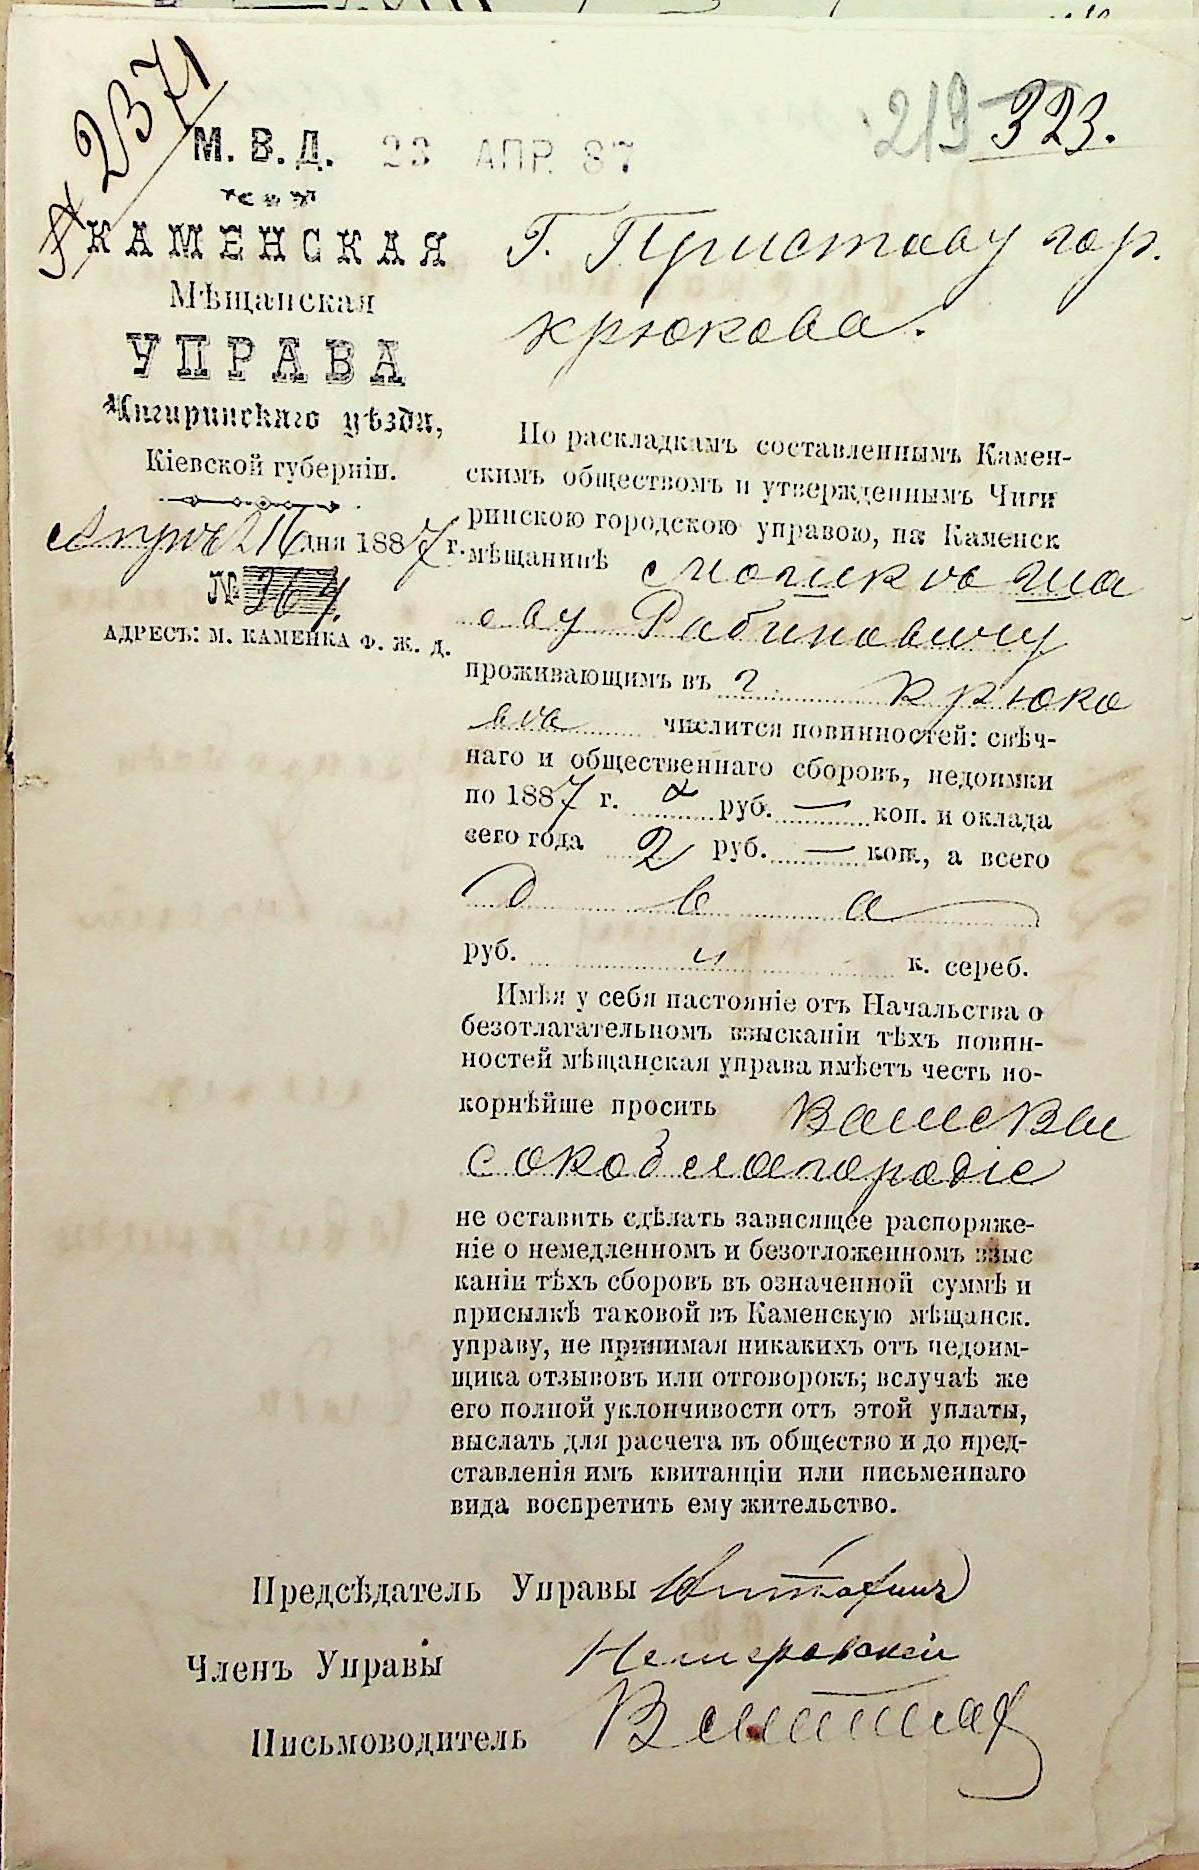 № 2371
219 323.
М. В. Д. 23 АПР. 87
КАМЕНСКАЯ
Мѣщанская
УПРАВА
Чигиринскаго уѣзда,
Кіевской губерніи.
дня 1887 г.
№ 264.
АДРЕСЪ: М. КАМЕНКА Ф. Ж. Д.
Г. Приставу гор.
Крюкова.
По раскладкамъ составленнымъ Камен-
скимъ обществомъ и утвержденнымъ Чиги
ринскою городскою управою, на Каменск
мѣщанинѣ
Рабиновичу
проживающимъ въ г. Крюко
вѣ числится повинностей: свѣч-
наго и общественнаго сборовъ, недоимки
по 1887 г. руб. — коп. и оклада
сего года 2 руб. — коп., а всего
два
руб. к. сереб.
Имѣя у себя настояніе отъ Начальства о
безотлагательномъ взысканіи тѣхъ повин-
ностей мѣщанская управа имѣетъ честь по-
корнѣйше просить Ваше Вы
сокоблагородіе
не оставить сдѣлать зависящее распоряже-
ніе о немедленномъ и безотложенномъ взыс
каніи тѣхъ сборовъ въ означенной суммѣ и
присылкѣ таковой въ Каменскую мѣщанск.
управу, не принимая никакихъ отъ недоим-
щика отзывовъ или отговорокъ; вслучаѣ же
его полной уклончивости отъ этой уплаты,
выслать для расчета въ общество и до пред-
ставленія имъ квитанціи или письменнаго
вида воспретить ему жительство.
Предсѣдатель Управы
Членъ Управы
Письмоводитель